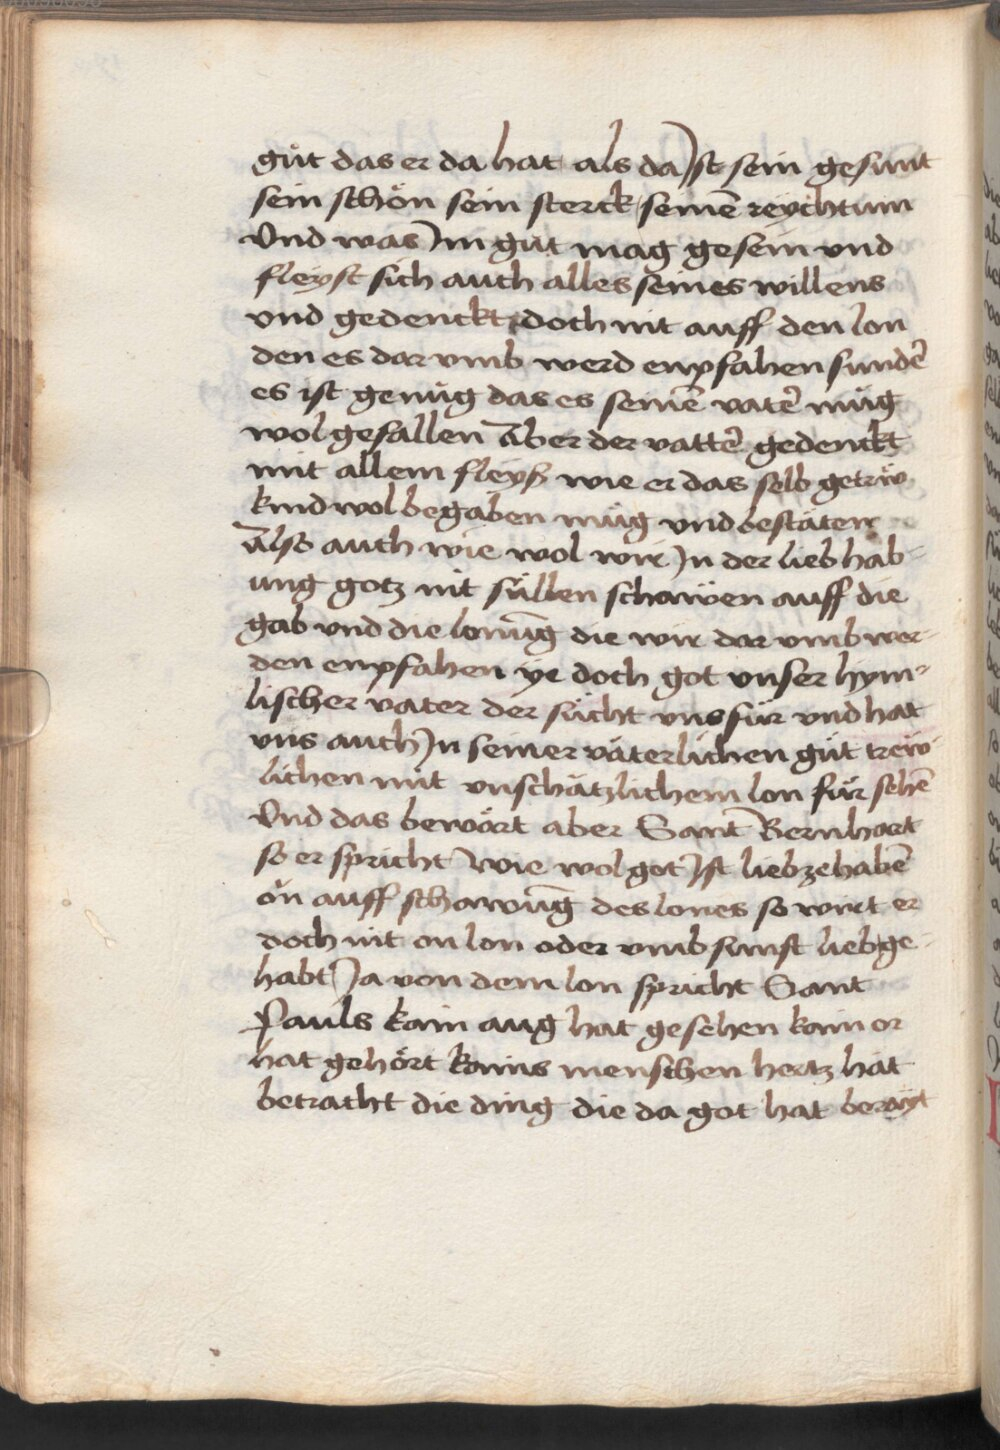 gůt das er da hat als da Jst sein gesunt
sein schön sein sterck seinē reychtum
Vnd was Jm gůt mag gesein vnd
fleyst sich auch alles seines willens
vnd gedenckt doch nit auff den lon
den es dar vmb werd enpfahen sundē
es ist genůg das es seinē vatē műg
wol gefallen Aber der vattē gedenckt
mit allem fleyß wie er das selb getrëw
kind wol begaben műg vnd bestäten
Also auch wie wol wir Jn der lieb hab-
ung gotz nit süllen schawen auff die
gab vnd die lonūg die wir dar vmb wer-
den enpfahen ye doch got vnser hym-
lischer vater der sücht vns für vnd hat
vns auch Jn seiner väterlichen gůt trëw
lichen mit vnschätzlichem lon für sehē
Vnd das bewärt aber Sant Bernhart
so er spricht wie wol got Jst lieb ze habē
on auff schawūg des lones so wirt er
doch nit on lon oder vmb sunst lieb ge-
habt Ja von dem lon spricht Sant
Pauls kain aug hat gesehen kain or
hat gehört kains menschen hertz hat
betracht die ding die da got hat berayt